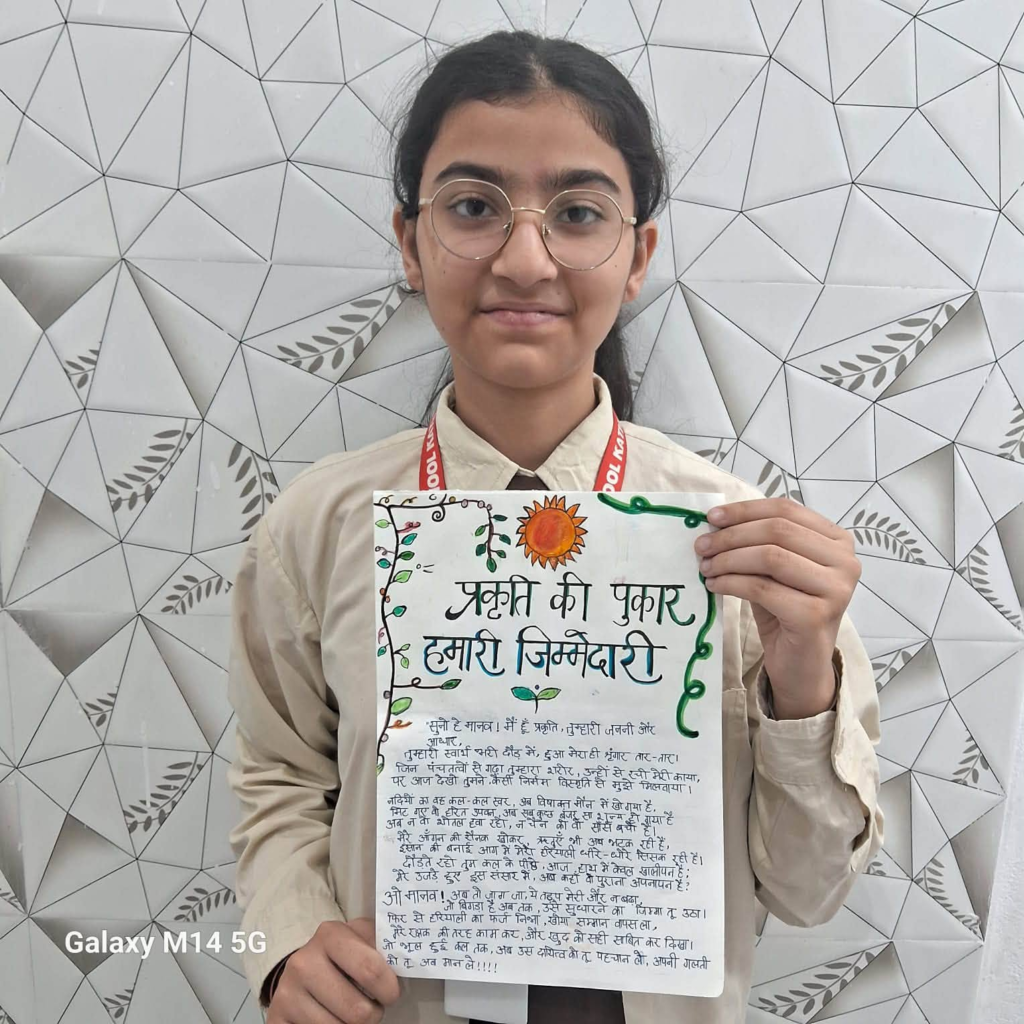 OOL KAT
OOL KAT
प्रकृति की पुकार
हमारी जिम्मेदारी
"सुनो हे मानव! मैं हूँ प्रकृति, तुम्हारी जननी और
आधार,
तुम्हारी स्वार्थ भरी दौड़ में, हुआ मेरा ही शृंगार तार-तार।
जिन पंचतत्वों से गढ़ा तुम्हारा शरीर, उन्हीं से रची मेरी काया,
पर आज देखो तुमने कैसी निर्मम विस्मृति से मुझे मिलवाया।
नदियों का वह कल-कल स्वर, अब विषाक्त मौन में खो गया है,
मिट गए वो हरित उपवन, अब सब कुछ बंजर सा शून्य हो गया है
अब न वो शीतल हवा रही, न चैन की वो साँसें बची हैं।
मेरे आँगन की रौनक खोकर, ऋतुएँ भी अब भटक रही हैं,
इंसान की बनाई आग में मेरी हरियाली धीरे-धीरे सिसक रही है।
दौड़ते रहो तुम कल के पीछे, आज हाथ में केवल खालीपन है;
मेरे उजड़े हुए इस संसार में, अब कहाँ वो पुराना अपनापन है?
ओ मानव! अब तो जाग जा, ये तड़प मेरी और न बढ़ा,
जो बिगड़ा है अब तक, उसे सुधारने का जिम्मा तू उठा।
फिर से हरियाली का फर्ज निभा, खोया सम्मान वापस ला,
मेरे रक्षक की तरह काम कर, और खुद को सही साबित कर दिखा।
जो भूल हुई कल तक, अब उस दायित्व को तू पहचान ले, अपनी गलती
को तू अब मान ले!!!!
Galaxy M14 5G